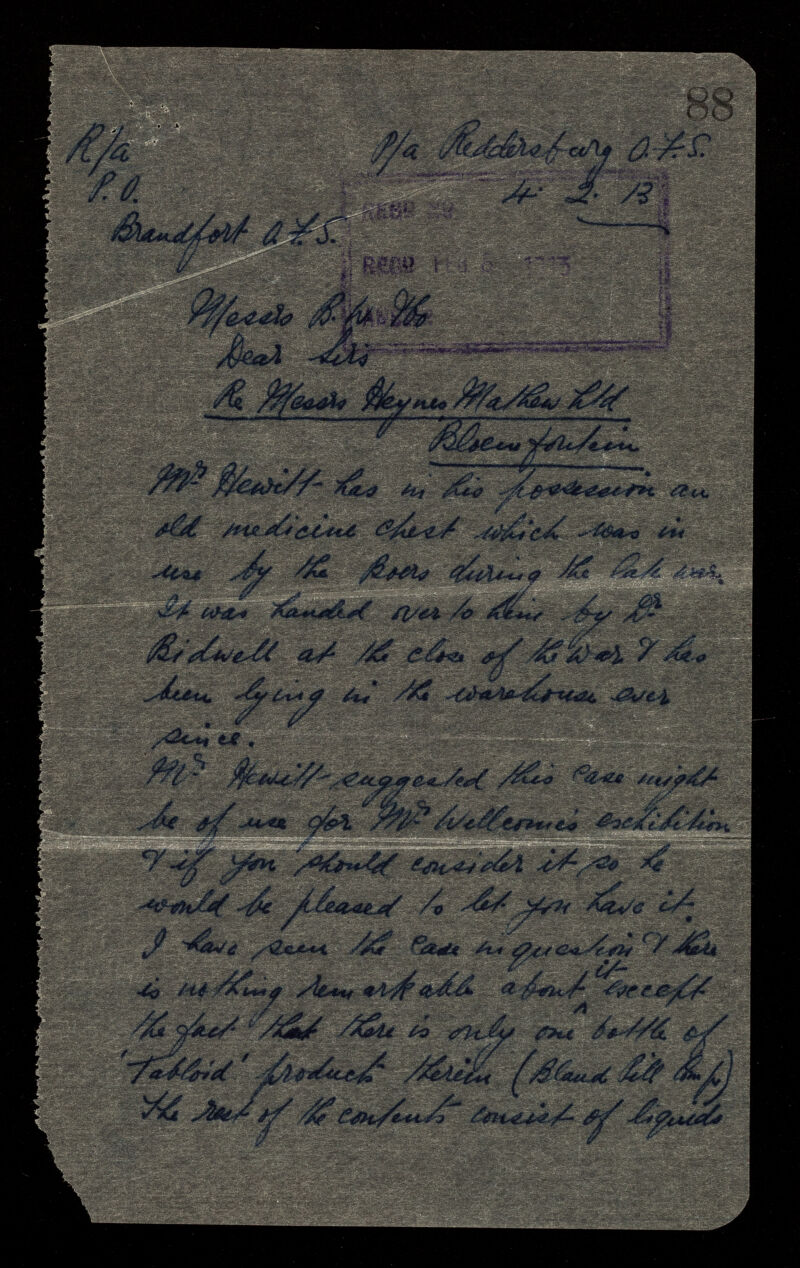 88
R/a
P/a Reddersburg O.F.S.
P.O.
4. 2. 13
Brandfort O.F.S.
RECD FEB 1913
Messrs B. W. &Co
Dear Sirs
Re Messrs Heynes Mathew Ltd
Bloemfontein
Mr Hewitt has in his possession an
old medicine chest which was in
use by the Boers during the late war.
It was handed over to him by Dr
Bidwell at the close of the war & has
been lying in the warehouse ever
since.
Mr Hewitt suggested this case might
be of use for Mr Wellcome's exhibition
& if you should consider it so he
would be pleased to let you have it.
I have seen the case in question & there
is nothing remarkable about it except
the fact that there is only one bottle of
'Tabloid' products therein (Blaud Pill Comp)
The rest of the contents consist of liquids